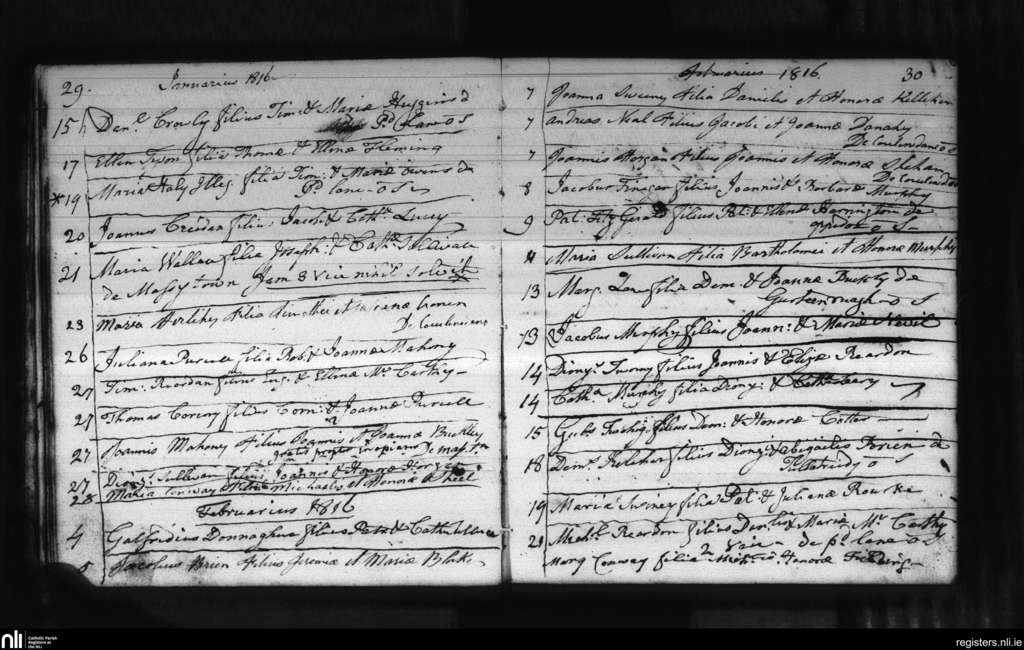 29. Januarius 1816
15 Denl. Crowly filius Tim: & Mariæ Huggins d
Pd Lane o S
17 Ellen Tyson filia Thomæ & Ellenæ Fleming
*19 Maria Haly Illeg. filia Tim: & Mariæ
Pd lane - o S
20 Joannes Creedan filius Jacobi & Cathæ Lucey
21 Maria Wallen filia Joseph: & Cathæ Sullivan
de Massytown Jam 8 Vice nihil solvit
23 Maria Herlihy filia
26 Juliana Purcell filia Rob. & Joannæ Mahony
27 Tim: Reordan filius Eug: & Ellenæ Mc Carthy
27 Thomas Corcory filius Tom: & Joannæ Purcell
27 Joannis Mahony filius Joannis et Joannæ Buckley
gratis propter inopiam De mass Tn
27 Diony: Sullivan filius Joannes & Honoræ
28 Maria Conway filia Michaelis et Honoræ Sheel
Februarius 1816
4 Galfridius Donnoghue filius Patr: & Cath Sullivan
5 Jacobus Brien filius Jeremiæ et Mariæ Blake
Februarius 1816. 30
7 Joanna Sweeny filia Danielis et Honoræ Kelleher
7 Andreas Neal filius Jacobi et Joannæ Danahy
7 Joannis Horgan filius Joannis et Honoræ Shehan
8 Jacobus Finegan filius Joannis & Barbaræ Murphy
9 Pat: Fitz Gerald filius Pat: & Ellenæ Harrington de
oppido o S
11 Maria Sullivan filia Bartholomei et Honoræ Murphy
13 Marg. Lane filia Dem: & Joannæ Buckly de
o S
13 Jacobus Murphy filius Joann: & Mariæ Nevil
14 Diony: Twomy filius Joannis & Elizæ Reardon
14 Cathª Murphy filia Diony: & Cathæ Leary
15 Gubt filius Dem: & Honoræ Cotter
18 Denns. Kelleher filius Diony: & Abigailis Brien d
o S
19 Maria Swiney filia Pat: & Julianæ Rourke
21 Michl. Reardon filius Denlis & Mariæ Mc Carthy
2 vice - de Pd lane o
Marg Conway filia Mich: & Honoræ
nli Catholic Parish
Registers at
the NLI
registers.nli.ie